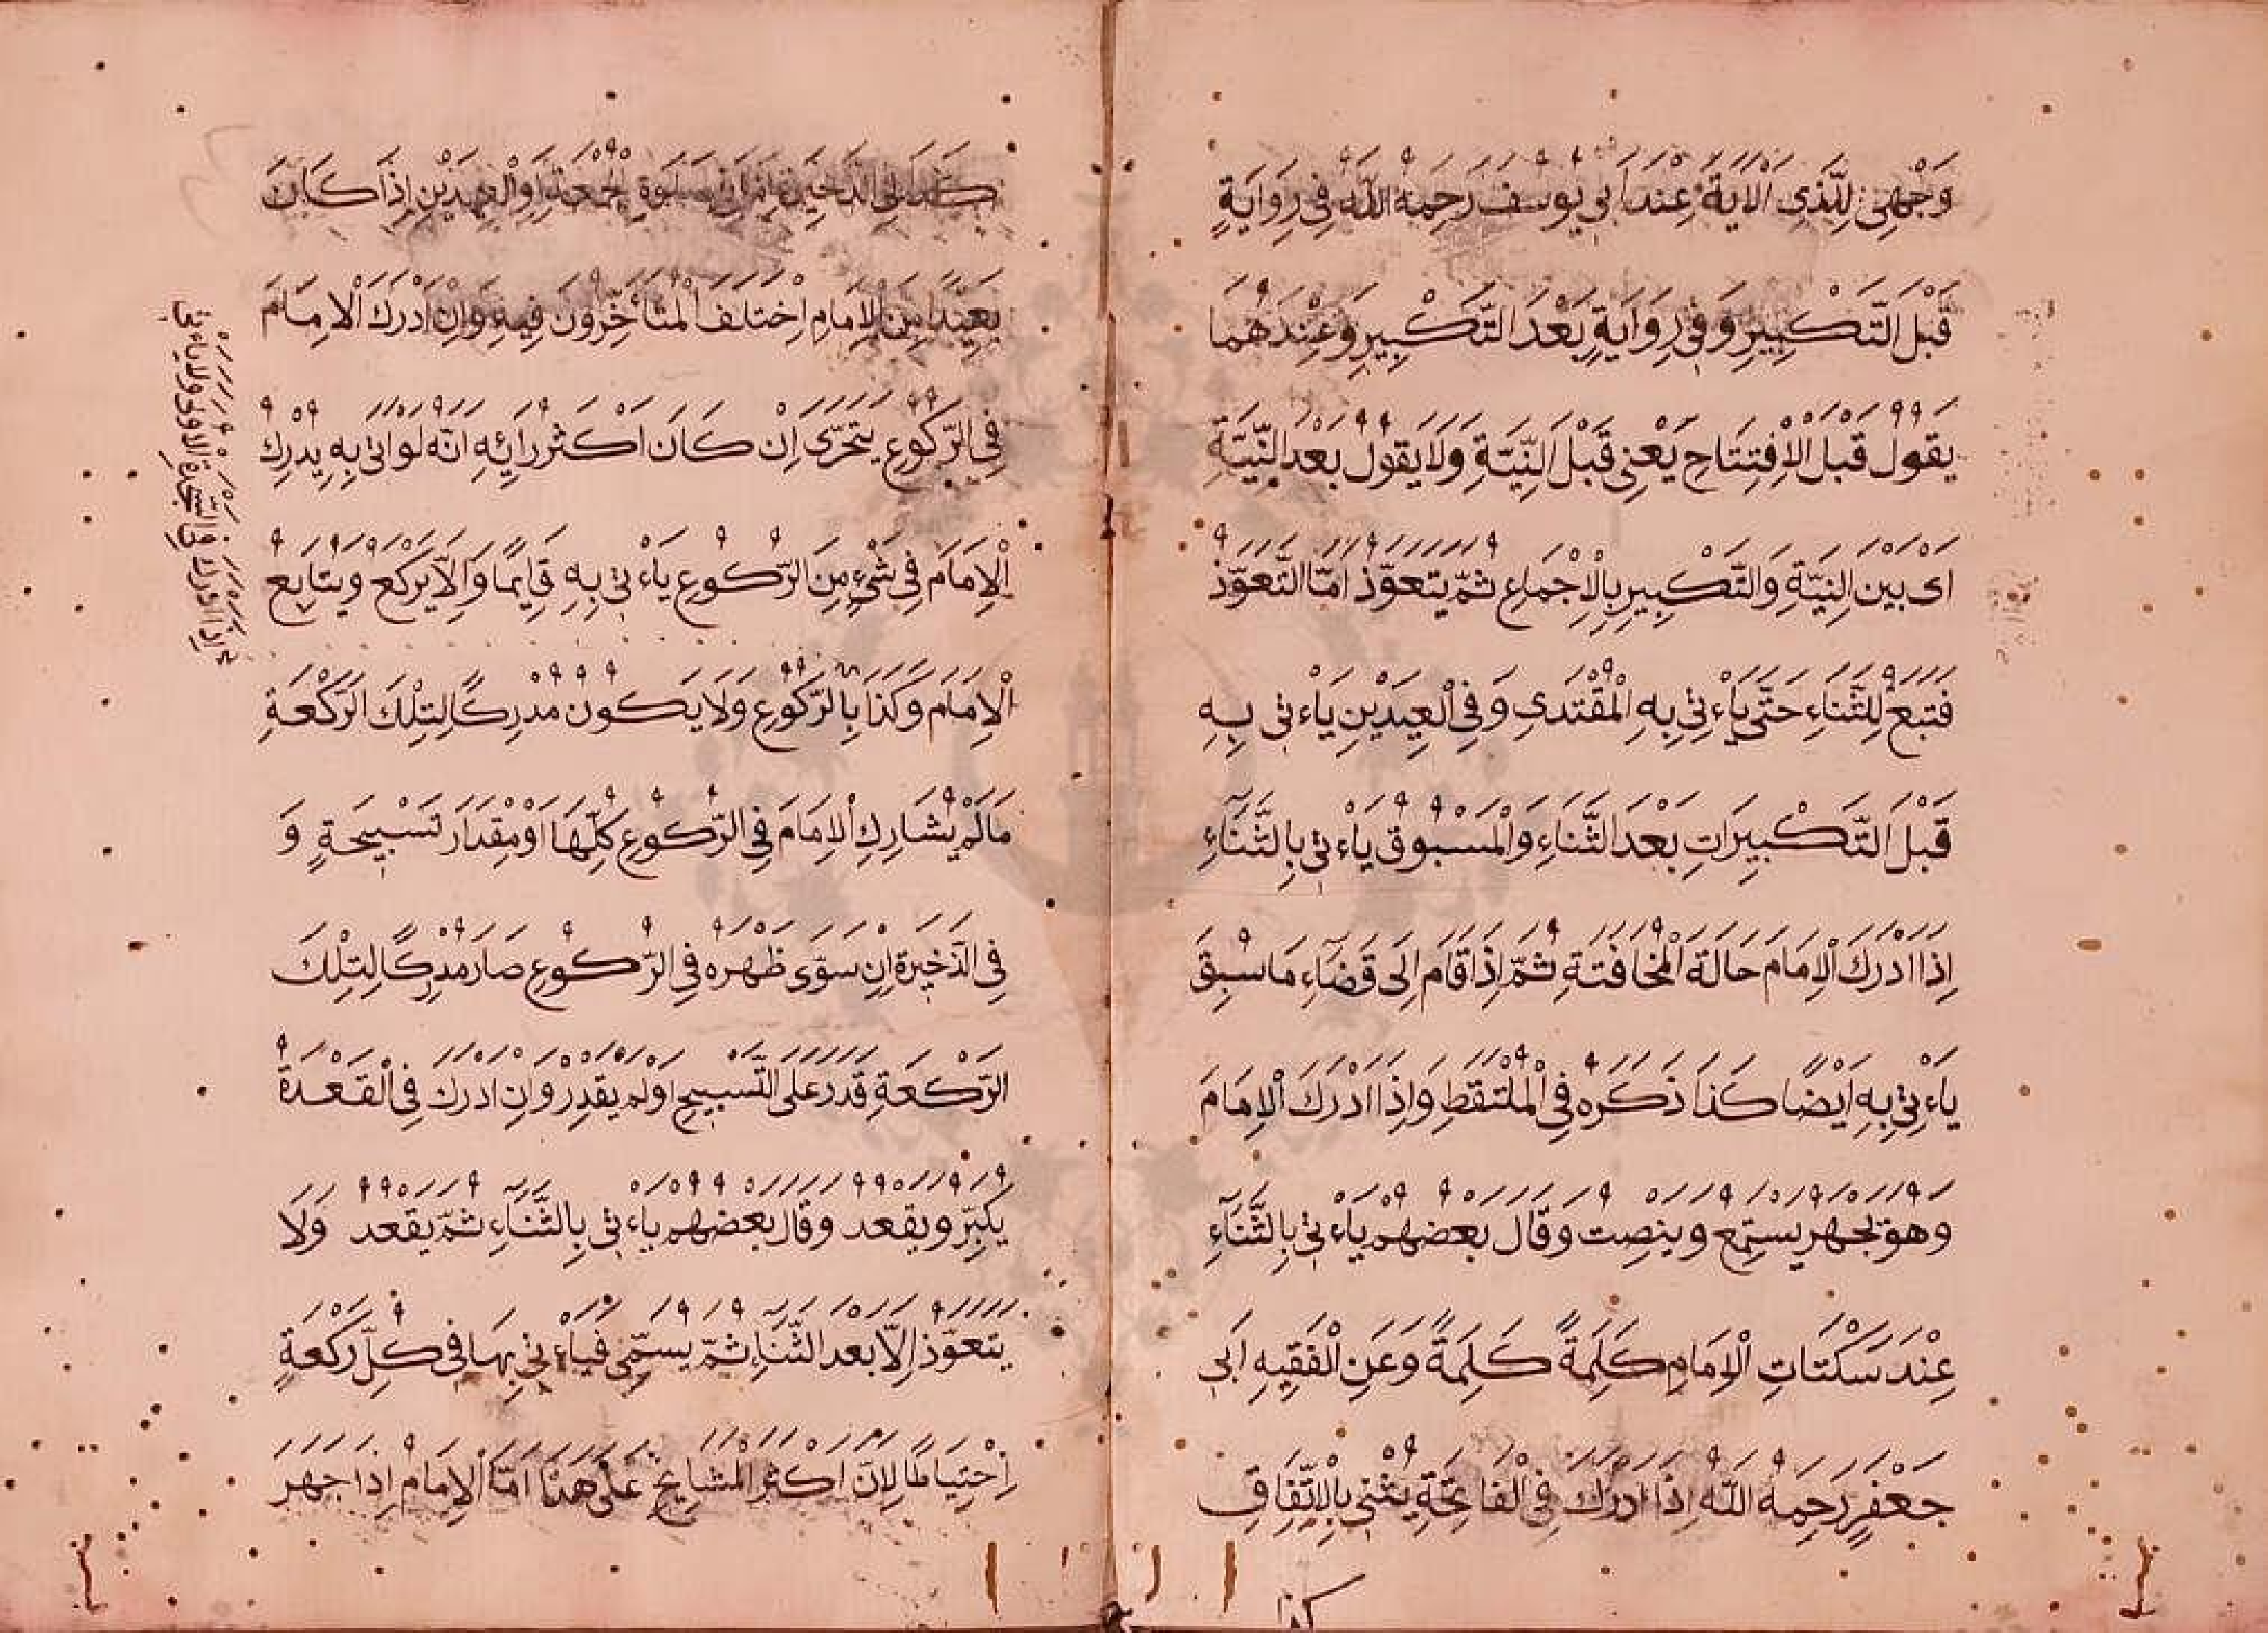 وَجْهِيَ لِلَّذِي الْآيَةَ عِنْدَ اَبِي يُوسُفَ رَحِمَهُ اللّٰهُ فِي رِوَايَةٍ
قَبْلَ التَّكْبِيرِ وَفِي رِوَايَةٍ بَعْدَ التَّكْبِيرِ وَعِنْدَهُمَا
يَقُولُ قَبْلَ الْاِفْتِتَاحِ يَعْنِي قَبْلَ النِّيَّةِ وَلَا يَقُولُ بَعْدَ النِّيَّةِ
اَىْ بَيْنَ النِّيَّةِ وَالتَّكْبِيرِ بِالْاِجْمَاعِ ثُمَّ يَتَعَوَّذُ اَمَّا التَّعَوُّذُ
فَتَبَعٌ لِلثَّنَاءِ حَتَّى يَاْءتِيَ بِهِ الْمُقْتَدِي وَفِي الْعِيدَيْنِ يَاْءتِي بِهِ
قَبْلَ التَّكْبِيرَاتِ بَعْدَ الثَّنَاءِ وَالْمَسْبُوقُ يَاْءتِي بِالثَّنَاءِ
اِذَا اَدْرَكَ الْاِمَامَ حَالَةَ الْمُخَافَتَةِ ثُمَّ اِذَا قَامَ اِلَى قَضَاءِ مَا سُبِقَ
يَاْءتِي بِهِ اَيْضًا كَذَا ذَكَرَهُ فِي الْمُلْتَقَطِ وَاِذَا اَدْرَكَ الْاِمَامَ
وَهُوَ يَجْهَرُ يَسْتَمِعُ وَيُنْصِتُ وَقَالَ بَعْضُهُمْ يَاْءتِي بِالثَّنَاءِ
عِنْدَ سَكَتَاتِ الْاِمَامِ كَلِمَةً كَلِمَةً وَعَنِ الْفَقِيهِ اَبِى
جَعْفَرٍ رَحِمَهُ اللّٰهُ اِذَا اَدْرَكَ فِي الْفَاتِحَةِ يُثْنِي بِالْاِتِّفَاقِ
كذا
كَذَا فِي الذَّخِيرَةِ اَمَّا فِي صَلٰوةِ الْجُمُعَةِ اَوِ الْعِيدَيْنِ اِذَا كَانَ
بَعِيدًا مِنَ الْاِمَامِ اِخْتَلَفَ الْمُتَأَخِّرُونَ فِيهِ وَاِنْ اَدْرَكَ الْاِمَامَ
فِي الرُّكُوعِ يَتَحَرَّى اِنْ كَانَ اَكْثَرُ رَايِهِ اَنَّهُ لَوْ اَتَى بِهِ يُدْرِكُ
الْاِمَامَ فِي شَيْءٍ مِنَ الرُّكُوعِ يَاْءتِي بِهِ قَائِمًا وَاِلَّا يَرْكَعُ وَيُتَابِعُ
الْاِمَامَ وَكَذَا بِالرُّكُوعِ وَلَا يَكُونُ مُدْرِكًا لِتِلْكَ الرَّكْعَةِ
مَا لَمْ يُشَارِكِ الْاِمَامَ فِي الرُّكُوعِ كُلِّهَا اَوْ مِقْدَارَ تَسْبِيحَةٍ وَ
فِي الذَّخِيرَةِ اِنْ سَوَّى ظَهْرَهُ فِي الرُّكُوعِ صَارَ مُدْرِكًا لِتِلْكَ
الرَّكْعَةِ قَدَرَ عَلَى التَّسْبِيحِ اَوْ لَمْ يَقْدِرْ وَاِنْ اَدْرَكَ فِي الْقَعْدَةِ
يُكَبِّرُ وَيَقْعُدُ وَقَالَ بَعْضُهُمْ يَاْءتِي بِالثَّنَاءِ ثُمَّ يَقْعُدُ وَلَا
يَتَعَوَّذُ اِلَّا بَعْدَ الثَّنَاءِ ثُمَّ يُسَمِّي فَيَاْءتِي بِهَا فِي كُلِّ رَكْعَةٍ
اِحْتِيَاطًا لِاَنَّ اَكْثَرَ الْمَشَايِخِ عَلَى هٰذَا اَمَّا الْاِمَامُ اِذَا جَهَرَ